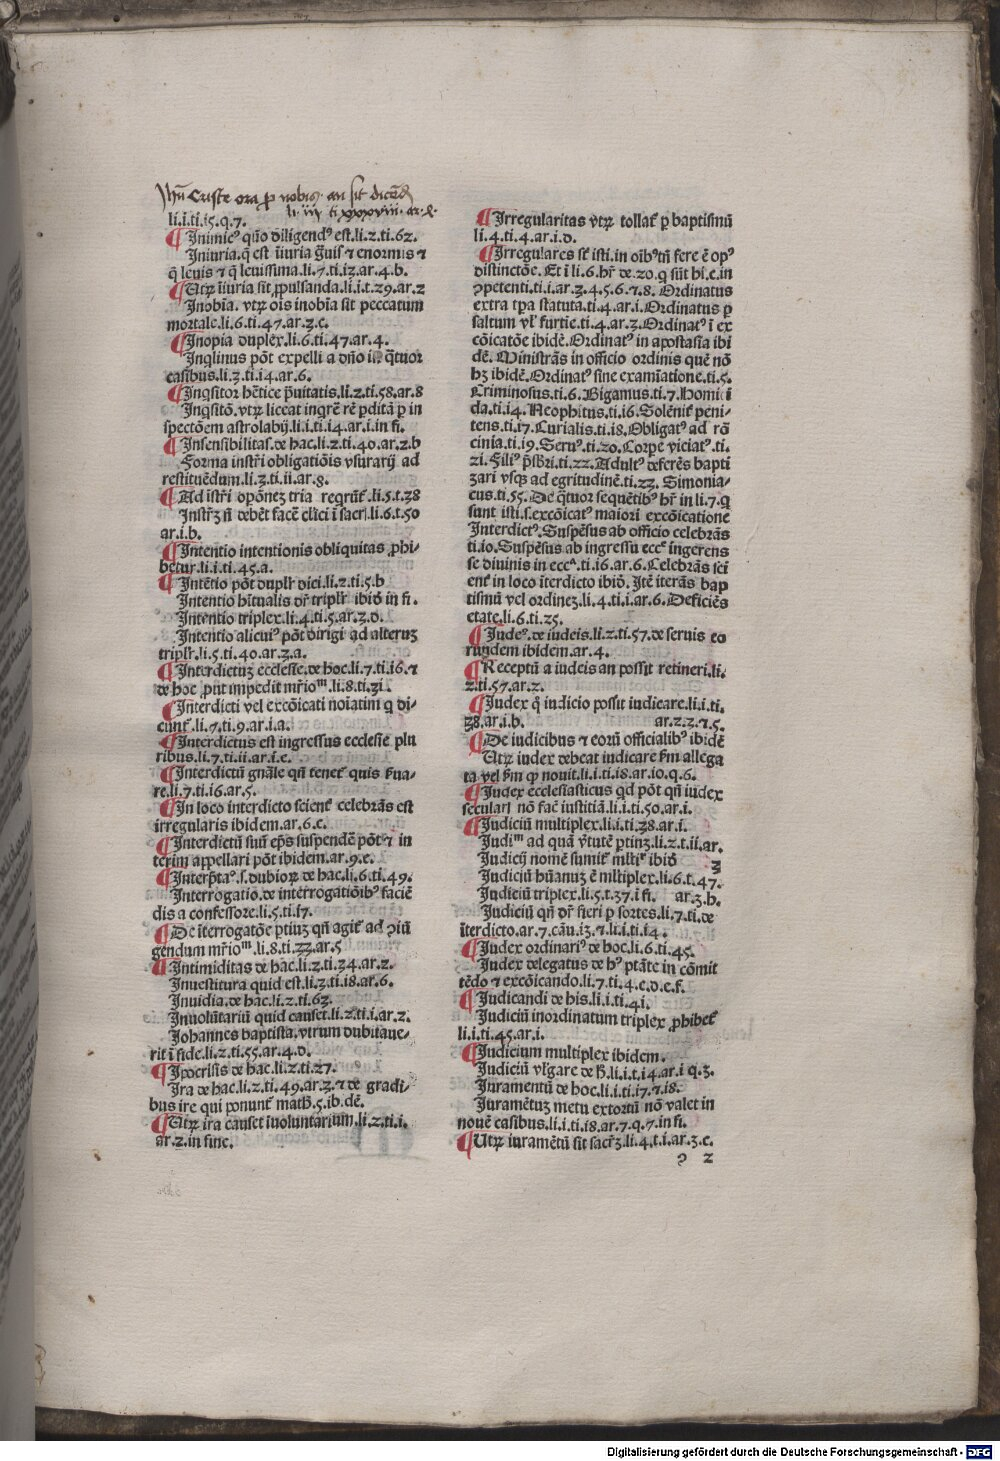 Jhū Criste ora p nobis· an sit dicēd
li· iij ti xxxviii· ar· 
li.i.ti.15.q.7.
¶ Inimicꝰ qūo diligendꝰ est.li.2.ti.62.
Iniuria.q̄ est īiuria ḡuis ⁊ enormis ⁊
q̄ leuis ⁊ q̄ leuissima.li.7.ti.13.ar.4.b.
¶ Utꝝ īiuria sit ꝓpulsanda.li.i.t.29.ar.2
Inobīa. vtꝝ oīs inobīa sit peccatum
mortale.li.6.ti.47.ar.3.c.
¶ Inopia duplex.li.6.ti.47.ar.4.
Inqlinus pōt expelli a dn̄o in q̄tuor
casibus.li.3.ti.14.ar.6.
¶ Inqsitor hētice p̄uitatis.li.2.ti.58.ar.8
Inqsitō.vtꝝ liceat inqrē rē ꝑditā ꝑ in
spectōem astrolabij.li.i.ti.14.ar.i.in fi.
¶ Insensibilitas.de hac.li.2.ti.40.ar.2.b
Forma instr̄i obligatiōis vsurarij ad
restituēdum.li.3.ti.ii.ar.8.
¶ Ad istr̄i opōnez tria reqrūt̄.li.5.t.38
Instr̄3 n̄ debēt facē cl̄ici ī sacr̄.li.6.t.50
ar.i.b.
¶ Intentio intentionis obliquitas ꝓhi-
betur.li.i.ti.45.a.
¶ Intētio pōt duplr̄ dici.li.2.ti.5.b
Intentio hītualis dr̄ triplr̄ ibiō in fi.
Intentio triplex.li.4.ti.5.ar.2.d.
Intentio alicuiꝰ pōt dirigi ad alteruz
triplr̄.li.5.ti.40.ar.3.a.
¶ Interdictuz ecclesie.de hoc.li.7.ti.16.⁊
de hoc ꝓut impedit mr̄ioᵐ.li.8.ti.3i.
¶ Interdicti vel excōicati noīatim q di-
cunt̄.li.7.ti.9.ar.i.a.
¶ Interdictus est ingressus ecclesie plu
ribus.li.7.ti.ii.ar.i.e.
¶ Interdictū gnāle qn̄ tenet̄ quis ẜua-
re.li.7.ti.16.ar.5.
¶ In loco interdicto scient̄ celebrās est
irregularis ibidem.ar.6.c.
¶ Interdictū suū ep̄s suspendē pōt ⁊ in
terim appellari pōt ibidem.ar.9.e.
¶ Interp̄taꝰ.s.dubioꝝ de hac.li.6.ti.49.
Interrogatio.de interrogatiōibꝰ faciē
dis a confessore.li.5.ti.17.
¶ De īterrogatōe ptiuz qn̄ agit̄ ad ꝯiū
gendum mr̄ioᵐ.li.8.ti.33.ar.5
¶ Intimiditas de hac.li.2.ti.34.ar.2.
Inuestitura quid est.li.3.ti.18.ar.6.
Inuidia.de hac.li.2.ti.63.
Inuolūtariū quid causet.li.2.ti.i.ar.2.
Johannes baptista.vtrum dubitaue-
rit ī fide.li.2.ti.55.ar.4.d.
¶ Ipocrisis de hac.li.2.ti.27.
Ira de hac.li.2.ti.49.ar.3.⁊ de gradi-
bus ire qui ponunt̄ math̄.5.ib.dē.
¶ Utꝝ ira causet īuoluntarium.li.2.ti.i.
ar.2.in fine.
¶ Irregularitas vtꝝ tollat̄ ꝑ baptismū
li.4.ti.4.ar.i.d.
¶ Irregulares sūt isti.in oībꝰ tn̄ fere ē opꝰ
distinctōe. Et ī li.6.hr̄ de.20.q sūt hī.e.in
ꝯpetenti.ti.i.ar.3.4.5.6.⁊.8. Ordinatus
extra tpa statuta.ti.4.ar.i.Ordinatus ꝑ
saltum vl̄ furtie.ti.4.ar.2.Ordinatꝰ ī ex
cōicatōe ibidē.Ordinatꝰ in apostasia ibi
dē. Ministrās in officio ordinis quē nō
hꝫ ibidē.Ordinatꝰ sine examīatione.ti.5.
Criminosus.ti.6. Bigamus.ti.7. Homici
da.ti.14. Neophitus.ti.16. Solēnit̄ peni-
tens.ti.17. Curialis.ti.18. Obligatꝰ ad rō
cinia.ti.19. Seruꝰ.ti.20. Corpe viciatꝰ.ti.
2i. Filiꝰ p̄sb̄ri.ti.22. Adultꝰ deferēs bapti
zari vsqꝫ ad egritudinē.ti.23. Simonia-
cus.ti.55. De q̄tuor sequētibꝰ hr̄ in li.7.q
sunt isti.s.excōicatꝰ maiori excōicatione
Interdictꝰ. Suspēsus ab officio celebrās
ti.10. Suspēsus ab ingressu ecc̄ ingerens
se diuinis in ecc̄ᵃ.ti.16.ar.6. Celebrās sci
ent̄ in loco īterdicto ibiō. Itē iterās bap
tismū vel ordinez.li.4.ti.i.ar.6. Deficiēs
etate.li.6.ti.25.
¶ Iudeꝰ.de iudeis.li.2.ti.57.de seruis eo
rundem ibidem.ar.4.
¶ Receptū a iudeis an possit retineri.li.
2.ti.57.ar.2.
¶ Iudex q̄ iudicio possit iudicare.li.i.ti.
38.ar.i.b. ar.2.3.⁊.5.
¶ De iudicibus ⁊ eorū officialibꝰ ibidē
Utꝝ iudex debeat iudicare ẜm allega
ta vel ẜm q nouit.li.i.ti.18.ar.10.q.6.
¶ Iudex ecclesiasticus qd pōt qn̄ iudex
seculari nō facit iustitiā.li.i.ti.50.ar.i.
¶ Iudiciū multiplex.li.i.ti.38.ar.i.
Iudiᵐ ad quā v̄tutē ptin3.li.2.t.ii.ar.
Iudicij nomē sumit̄ mltiᵗ ibiō 3
Iudiciū hūanuz ē mltiplex.li.6.t.47.
Iudiciū triplex.li.5.t.37.ī fi. ar.3.b.
Iudiciū qn̄ dr̄ fieri ꝑ sortes.li.7.ti.de
īterdicto.ar.7.cāu.13.⁊ li.i.ti.14.
¶ Iudex ordinariꝰ de hoc.li.6.ti.45.
Iudex delegatus de hꝰ ptāte in cōmit
tēdo ⁊ excōicando.li.7.ti.4.c.d.e.f.
¶ Iudicandi de his.li.i.ti.4i.
Iudiciū inordinatum triplex ꝓhibet̄
li.i.ti.45.ar.i.
¶ Iudicium multiplex ibidem.
Iudiciū vlgare de h̄.li.i.t.14.ar.i q.3.
Iuramentū de hoc.li.i.ti.17.⁊.18.
Iuramētuz metu extortū nō valet in
nouē casibus.li.i.ti.18.ar.7.q.7.in fi.
¶ Utꝝ iuramētū sit sacr̄3.li.4.t.i.ar.3.c.
ꝯ 2
Digitalisierung gefördert durch die Deutsche Forschungsgemeinschaft - DFG